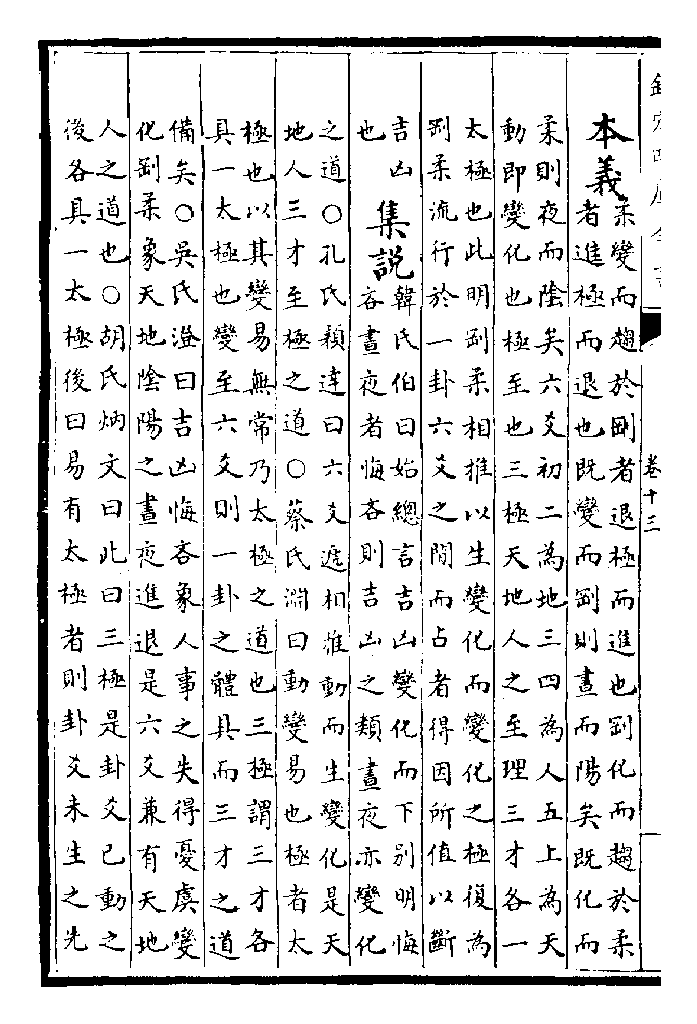 欽定四庫全書
卷十三
本義
柔變而趨於剛者退極而進也剛化而趨於柔
者進極而退也既變而剛則晝而陽矣既化而
柔則夜而陰矣六爻初二為地三四為人五上為天
動即變化也極至也三極天地人之至理三才各一
太極也此明剛柔相推以生變化而變化之極復為
剛柔流行於一卦六爻之間而占者得因所值以斷
吉凶
也
集説
韓氏伯曰始總言吉凶變化而下別明悔
吝晝夜者悔吝則吉凶之類晝夜亦變化
之道○孔氏穎達曰六爻遞相推動而生變化是天
地人三才至極之道○蔡氏淵曰動變易也極者太
極也以其變易無常乃太極之道也三極謂三才各
具一太極也變至六爻則一卦之體具而三才之道
備矣○吳氏澄曰吉凶悔吝象人事之失得憂虞變
化剛柔象天地陰陽之晝夜進退是六爻兼有天地
人之道也○胡氏炳文曰此曰三極是卦爻已動之
後各具一太極後曰易有太極者則卦爻未生之先